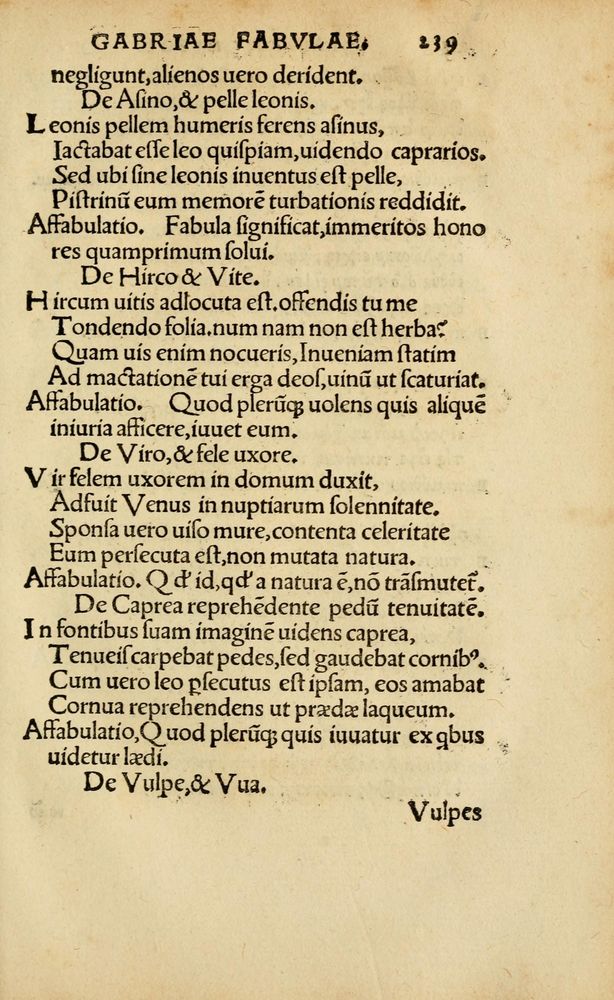 GABRIAE FABVLAE. 239
negligunt,alienos uero derident.
De Aſino,& pelle leonis.
Leonis pellem humeris ferens aſinus,
Iactabat eſſe leo quiſpiam,uidendo caprarios.
Sed ubi ſine leonis inuentus eſt pelle,
Piſtrinū eum memorē turbationis reddidit.
Affabulatio. Fabula ſignificat,immeritos hono
res quamprimum ſolui.
De Hirco & Vite.
Hircum uitis adlocuta eſt.offendis tu me
Tondendo folia.num nam non eſt herba?
Quam uis enim nocueris,Inueniam ſtatim
Ad mactationē tui erga deoſ,uinū ut ſcaturiat.
Affabulatio. Quod plerūqꝫ uolens quis aliquē
iniuria afficere,iuuet eum.
De Viro,& fele uxore.
Vir felem uxorem in domum duxit,
Adfuit Venus in nuptiarum ſolennitate.
Sponſa uero uiſo mure,contenta celeritate
Eum perſecuta eſt,non mutata natura.
Affabulatio. Qđ id,qđ a natura ē,nō trāſmutet᷑.
De Caprea reprehēdente pedū tenuitatē.
In fontibus ſuam imaginē uidens caprea,
Tenueiſ carpebat pedes,ſed gaudebat cornibꝰ.
Cum uero leo ꝑſecutus eſt ipſam, eos amabat
Cornua reprehendens ut prædæ laqueum.
Affabulatio,Quod plerūqꝫ quis iuuatur ex qbus
uidetur lædi.
De Vulpe,& Vua.
Vulpes